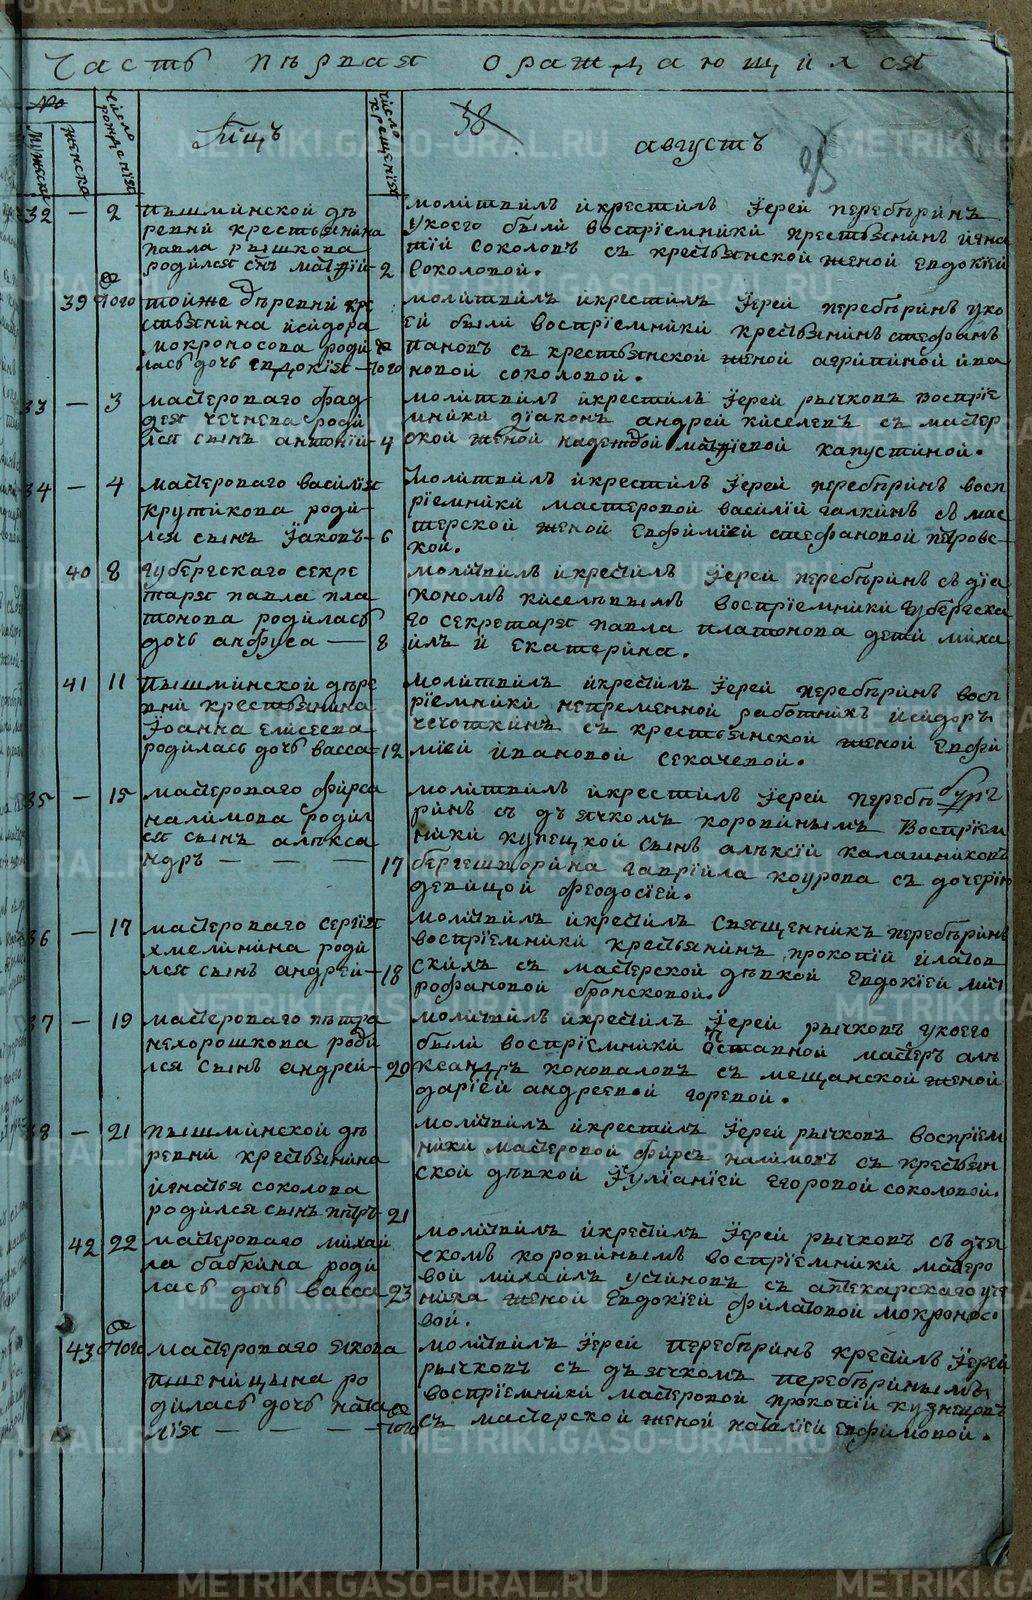 Часть первая ораждающихся
№
мужеска
женска
число рожденiя
число крещенiя
38
августъ
32 — 2 пышминской де
ревни крестьянина
павла рышкова
родился снъ матѳiй — 2
молитвилъ икрестилъ Iерей перебѣринъ
укоего были воспрiемники крестьянинъ игна
тiй соколовъ съ крестьянской женой евдокiей
соколовой.
39 того тойже деревни кре
стьянина исидора
мокроносова роди
лась дочь евдокiя — того
молитвилъ икрестилъ Iерей перебѣринъ уко
ей были воспрiемники крестьянинъ стефанъ
пановъ съ крестьянской женой агрипиной ива
новой соколовой.
33 — 3 мастероваго фад
дея чечнева роди
лся сынъ антонiй — 4
молитвилъ икрестилъ Iерей рычковъ воспрiе
мники дiаконъ андрей киселевъ съ мастер
ской женой надеждой матѳiевой капустиной.
34 — 4 мастероваго василiя
крутикова роди
лся сынъ Iаковъ — 6
молитвилъ икрестилъ Iерей перебѣринъ восп
рiемники мастеровой василiй галкинъ съ мас
терской женой евфимiей стефановой петровс
кой.
40 8 губернскаго секре
таря павла пла
тонова родилась
дочь анфуса — 8
молитвилъ икрестилъ Iерей перебѣринъ съ дiа
кономъ киселѣвымъ воспрiемники губернска
го секретаря павла платонова дети миха
илъ и екатерина.
41 11 пышминской дере
вни крестьянина
Iоанна елисеева
родилась дочь васса — 12
молитвилъ икрестилъ Iерей перебѣринъ восп
рiемники непременной работникъ исидоръ
чечоткинъ съ крестьянской женой евфи
мiей ивановой секачевой.
35 — 15 мастероваго фирса
налимова родил
ся сынъ алѣкса
ндръ — — — 17
молитвилъ икрестилъ Iерей перебѣ
ринъ съ дьячкомъ коровинымъ воспрiем
ники купецкой сынъ алѣксiй калашниковъ
бергешворина гаврiила коурова съ дочерiю
девицой феодосiей.
36 — 17 мастероваго сергiя
хмелинина роди
лся сынъ андрей — 18
молитвилъ икрестилъ священникъ перебѣринъ
воспрiемники крестьянинъ прокопiй илатов
скихъ съ мастерской дѣвкой евдокiей мит
рофановой бронсковой.
37 — 19 мастероваго пѣтра
нехорошкова роди
лся сынъ андрей — 20
молитвилъ икрестилъ Iерей рычковъ укоего
были воспрiемники отставной мастеръ алѣ
ксандръ коноваловъ съ мещанской женой
дарiей андреевой горевой.
38 — 21 пышминской де
ревни крестьянина
игнатья соколова
родился сынъ петръ — 21
молитвилъ икрестилъ Iерей рычковъ воспрiем
ники мастеровой фирсъ налимовъ съ крестьян
ской дѣвкой Iулiанiей егоровой соколовой.
42 22 мастероваго михаи
ла бабкина роди
лась дочь васса — 23
молитвилъ икрестилъ Iерей рычковъ съ дьяч
комъ коровинымъ воспрiемники мастеро
вой михаилъ устиновъ съ аптекарскаго уче
ника женой евдокiей филатовой мокроносо
вой.
43 того мастероваго якова
пшеницына ро
дилась дочь ната
лiя — — — того
молитвилъ Iерей перебѣринъ крестилъ Iерей
рычковъ съ дьячкомъ перебѣринымъ
воспрiемники мастеровой прокопiй кузнецовъ
съ мастерской женой наталiей евфимовой.
METRIKI.GASO-URAL.RU